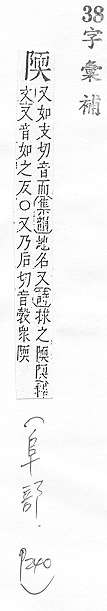 38字彙補
陾
又如支切音而集韻地名又詩捄之陾陾釋
文又音如之反○又乃后切音㝅衆陾
（阜部.
P240）